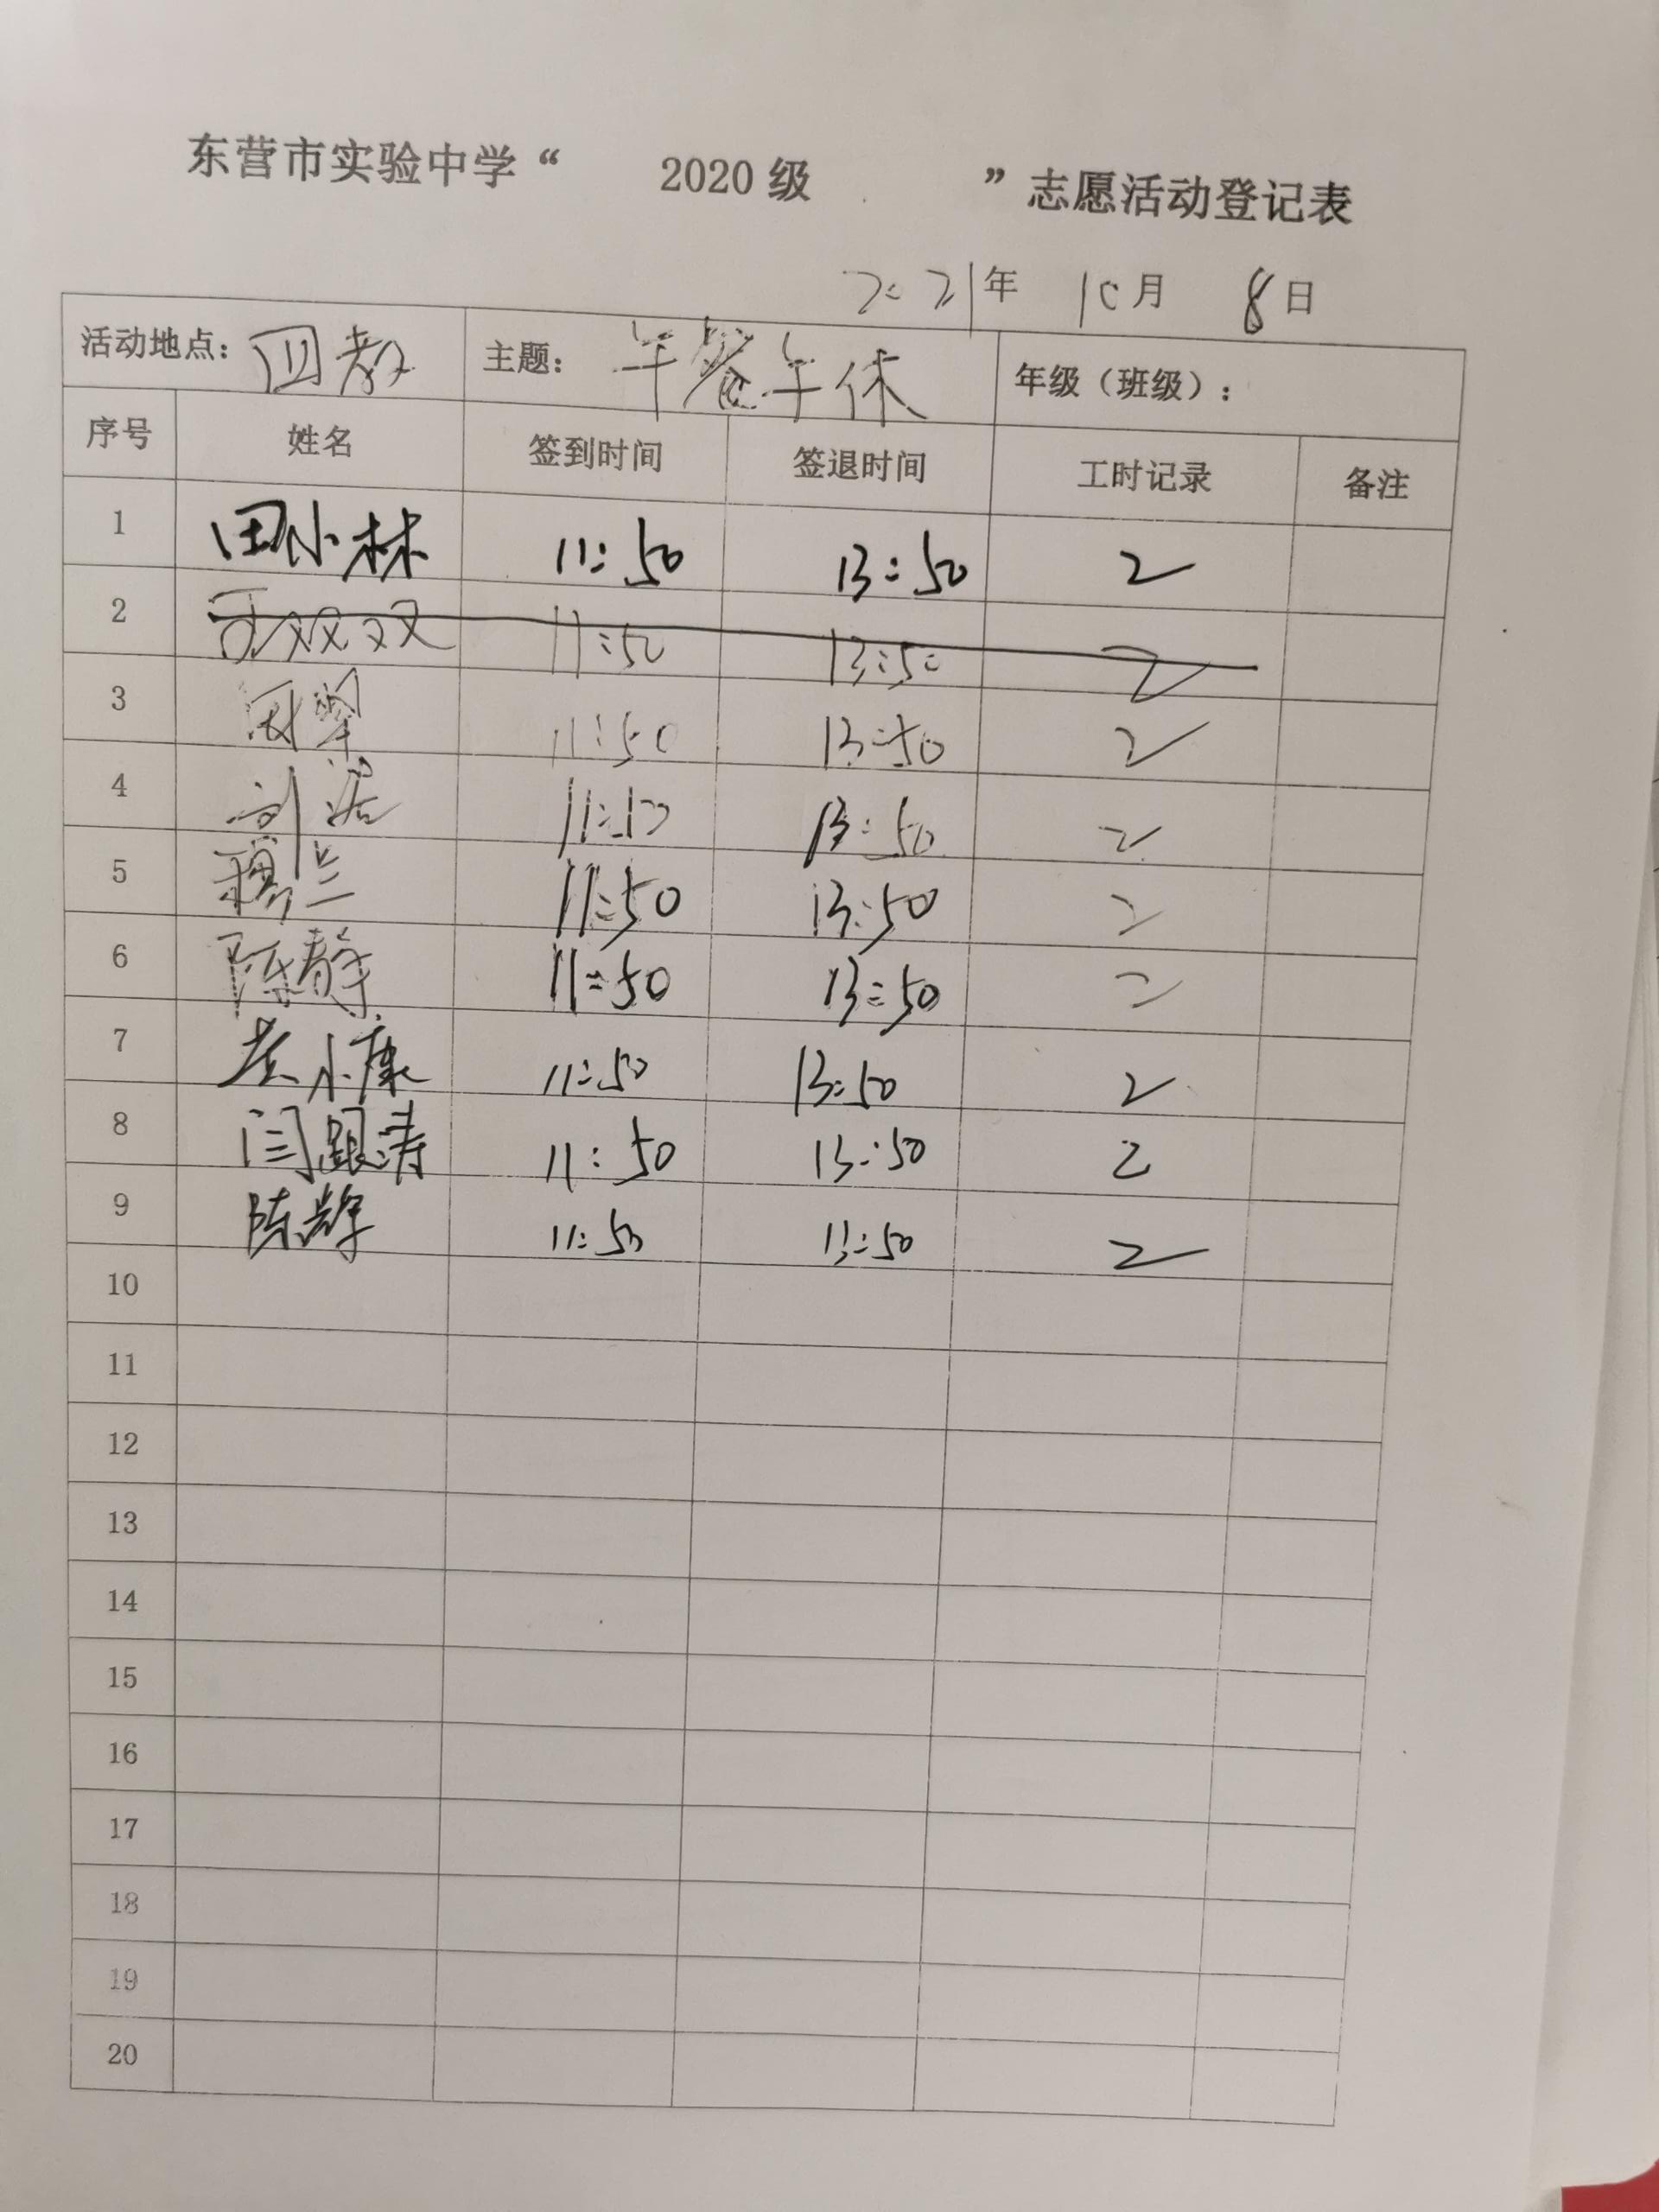 东营市实验中学“ 2020 级 ”志愿活动登记表
2021年 10月 8日
活动地点：四教 主题：午餐午休 年级（班级）：
序号 姓名 签到时间 签退时间 工时记录 备注
1 田小林 11:50 13:50 2
2 王双双 11:50 13:50 2
3 11:50 13:50 2
4 刘 13:50 2
5 穆兰 11:50 13:50 2
6 陈静 11:50 13:50 2
7 小康 11:50 13:50 2
8 闫银涛 11:50 13:50 2
9 陈辉 11:50 13:50 2
10
11
12
13
14
15
16
17
18
19
20